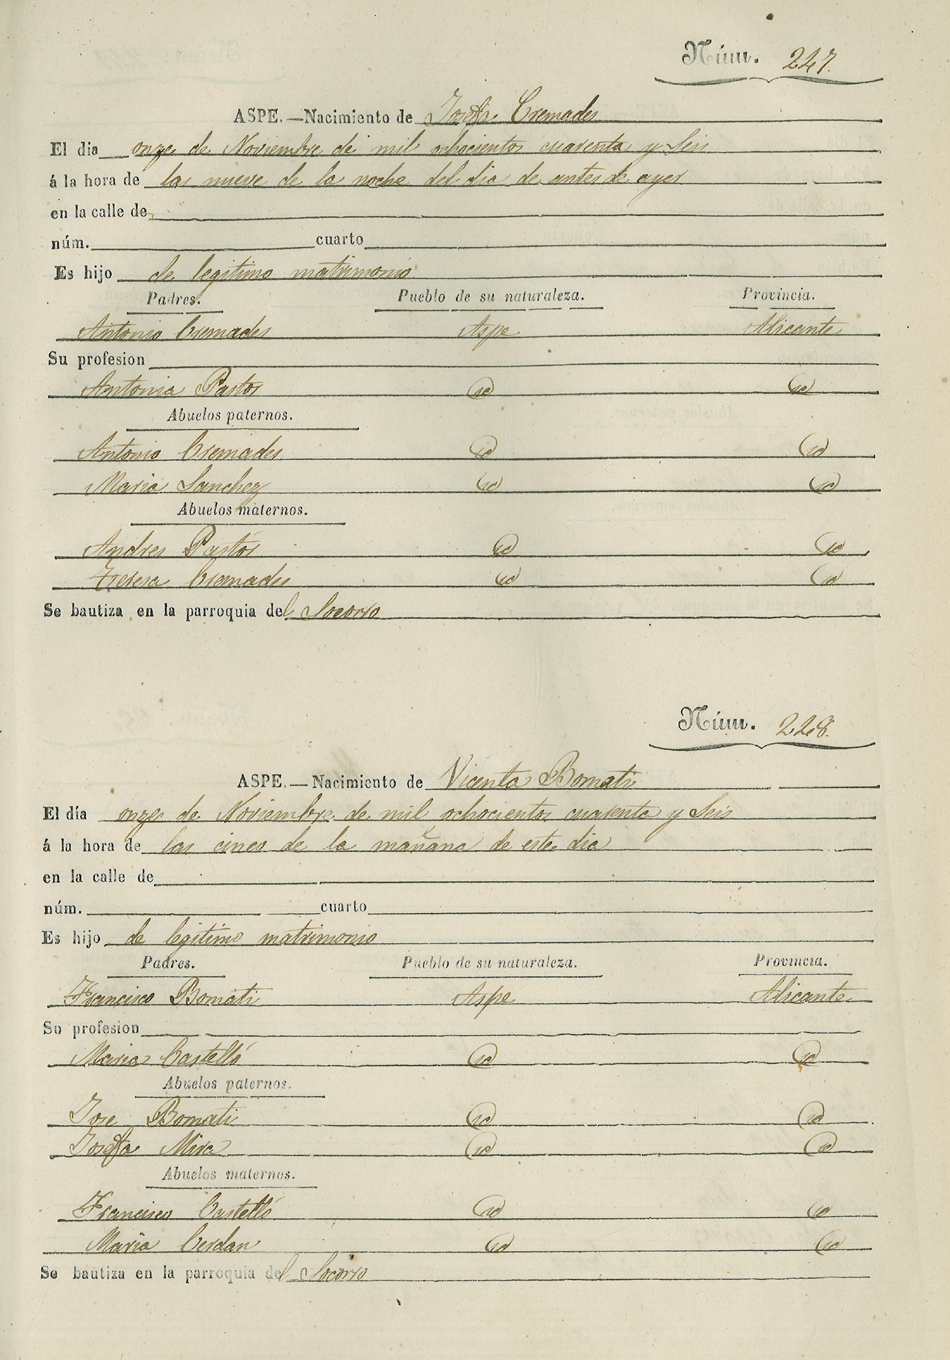 Núm. 227.
ASPE.—Nacimiento de Josefa Cremades
El dia onze de Noviembre de mil ochocientos cuarenta y Seis
á la hora de las nueve de la noche del dia de antes de ayer
en la calle de
núm. cuarto
Es hijo de legitimo matrimonio
Padres. Pueblo de su naturaleza. Provincia.
Antonio Cremades Aspe Alicante
Su profesion
Antonia Pastor id id
Abuelos paternos.
Antonio Cremades id id
Maria Sanchez id id
Abuelos maternos.
Andres Pastor id id
Teresa Cremades id id
Se bautiza en la parroquia del Socorro
Núm. 228.
ASPE.—Nacimiento de Vicenta Bomati
El día onze de Noviembre de mil ochocientos cuarenta y Seis
á la hora de las cinco de la mañana de este dia
en la calle de
núm. cuarto
Es hijo de legitimo matrimonio
Padres. Pueblo de su naturaleza. Provincia.
Francisco Bomati Aspe Alicante
Su profesion
Maria Castelló id id
Abuelos paternos.
Jose Bomati id id
Josefa Mira id id
Abuelos maternos.
Francisco Castelló id id
Maria Cerdan id id
Se bautiza en la parroquia del Socorro